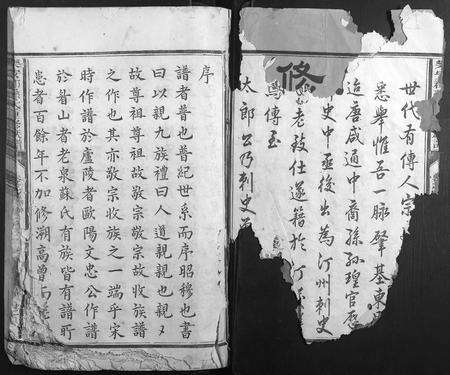 世代有傳人宗
悉學惟吾一脉肇基
追唐咸通中裔孫瑝官
史中丞後出為汀州刺史
老致仕遂籍於汀
鳴傳玉
太郎公乃刺史
修
序
譜者普也普紀世系而序昭穆也書
曰以親九族禮曰人道親親也親々
故尊祖尊祖故敬宗敬宗故收族譜
之作也其亦敬宗收族之一端乎宋
時作譜於廬陵者歐陽文忠公作譜
於眉山者老泉蘇氏有族皆有譜所
患者百餘年不加修溯高曾而